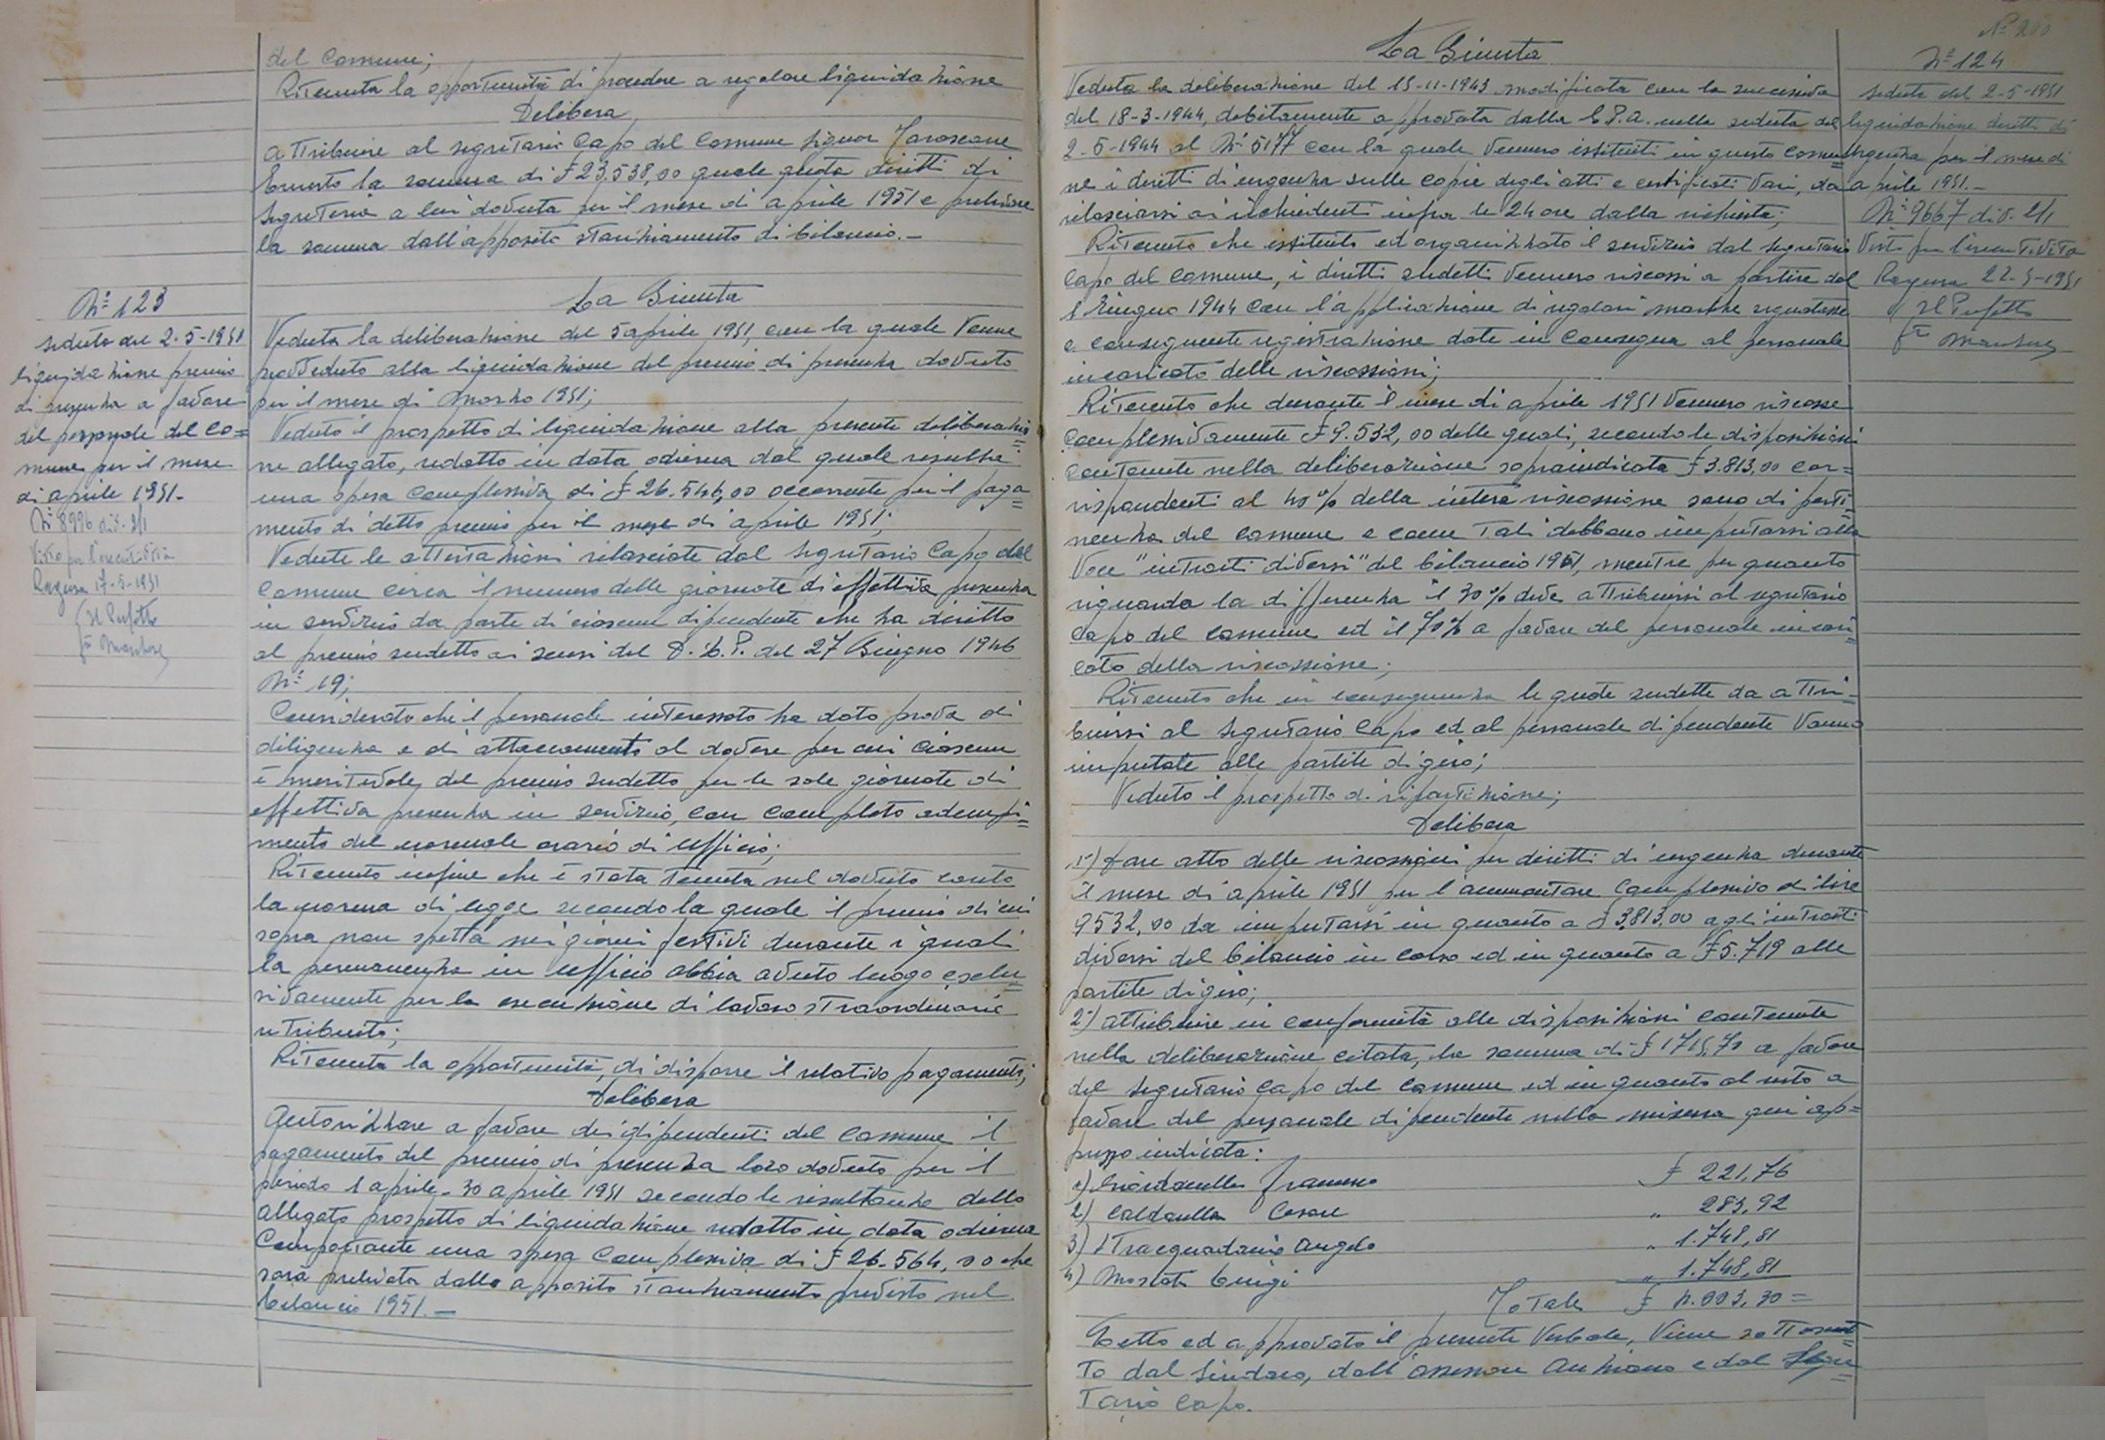 del Comune;
Ritenuta la opportunità di procedere a regolare liquidazione
Delibera
Attribuire al segretario Capo del Comune signor
Ernesto la somma di £ 23.538,00 quale quota diritti di
segreteria a lui dovuta per il mese di aprile 1951 e prelevare
la somma dall'apposito stanziamento di bilancio.—
N° 123
seduta del 2-5-1951
liquidazione premio
di presenza a favore
del personale del Co=
mune per il mese
di aprile 1951.
N° 8996 div. 2/1
Visto per l'esecutività
Ragusa 17-5-1951
Il Prefetto
La Giunta
Veduta la deliberazione del 5 aprile 1951, con la quale venne
provveduto alla liquidazione del premio di presenza dovuto
per il mese di Marzo 1951;
Veduto il prospetto di liquidazione alla presente deliberazio=
ne allegato, redatto in data odierna dal quale risulta
una spesa complessiva di £ 26.546,00 occorrente per il paga=
mento di detto premio per il mese di aprile 1951;
Vedute le attestazioni rilasciate dal Segretario Capo del
Comune circa il numero delle giornate di effettiva presenza
in servizio da parte di ciascun dipendente che ha diritto
al premio sudetto ai sensi del D.L.P. del 27 Giugno 1946
N° 19;
Considerato che il personale interessato ha dato prova di
diligenza e di attaccamento al dovere per cui ciascuno
è meritevole del premio sudetto per le sole giornate di
effettiva presenza in servizio, con completo adempi=
mento del normale orario di ufficio;
Ritenuto infine che è stata tenuta nel dovuto conto
la norma di legge secondo la quale il premio di cui
sopra non spetta nei giorni festivi durante i quali
la permanenza in ufficio abbia avuto luogo esclu=
sivamente per la esecuzione di lavoro straordinario
retribuito;
Ritenuta la opportunità, di disporre il relativo pagamento;
Delibera
Autorizzare a favore dei dipendenti del Comune il
pagamento del premio di presenza loro dovuto per il
periodo 1 aprile - 30 aprile 1951 secondo le risultanze dello
allegato prospetto di liquidazione redatto in data odierna
comportante una spesa complessiva di £ 26.564,00 che
sarà prelevata dallo apposito stanziamento previsto nel
bilancio 1951.—
N° 200
N° 124
seduta del 2-5-1951
liquidazione diritti di
urgenza per il mese di
aprile 1951.—
N° 9667 div. 2/1
Visto per l'esecutività
Ragusa 22-5-1951
Il Prefetto
La Giunta
Veduta la deliberazione del 15-11-1943 modificata con la successiva
del 18-3-1944, debitamente approvata dalla G.P.A. nella seduta del
2-5-1944 al N° 5177 con la quale vennero istituiti in questo comu=
ne i diritti di urgenza sulle copie degli atti e certificati vari, da
rilasciarsi ai richiedenti infra le 24 ore dalla richiesta;
Ritenuto che istituito ed organizzato il servizio dal segretario
Capo del Comune, i diritti sudetti vennero riscossi a partire dal
1 Giugno 1944 con l'applicazione di regolari marche segnatasse
e conseguente registrazione date in consegna al personale
incaricato delle riscossioni;
Ritenuto che durante il mese di aprile 1951 vennero riscosse
complessivamente £ 9.532,00 delle quali, secondo le disposizioni
contenute nella deliberazione sopraindicata £ 3.813,00 cor=
rispondenti al 40% della intera riscossione sono di perti=
nenza del Comune e come tali debbono imputarsi alla
voce "introiti diversi" del bilancio 1951, mentre per quanto
riguarda la differenza il 30% deve attribuirsi al segretario
Capo del Comune ed il 70% a favore del personale incari=
cato della riscossione;
Ritenuto che in conseguenza le quote sudette da attri=
buirsi al Segretario Capo ed al personale dipendente vanno
imputate alle partite di giro;
Veduto il prospetto di ripartizione;
Delibera
1°) fare atto delle riscossioni per diritti di urgenza durante
il mese di aprile 1951 per l'ammontare complessivo di lire
9532,00 da imputarsi in quanto a £ 3.813,00 agli introiti
diversi del bilancio in corso ed in quanto a £ 5.719 alle
partite di giro;
2°) attribuire in conformità alle disposizioni contenute
nella deliberazione citata, la somma di £ 1715,70 a favore
del Segretario Capo del Comune ed in quanto al resto a
favore del personale dipendente nella misura qui ap=
presso indicata:
1) Francesco £ 221,76
2) Caldarella Cesare " 283,92
3) Stracquadanio Angelo " 1.748,81
4) Luigi " 1.748,81
Totale £ 4.003,30=
Letto ed approvato il presente Verbale, viene sottoscrit=
to dal Sindaco, dall'assessore anziano e dal Segre=
tario Capo.